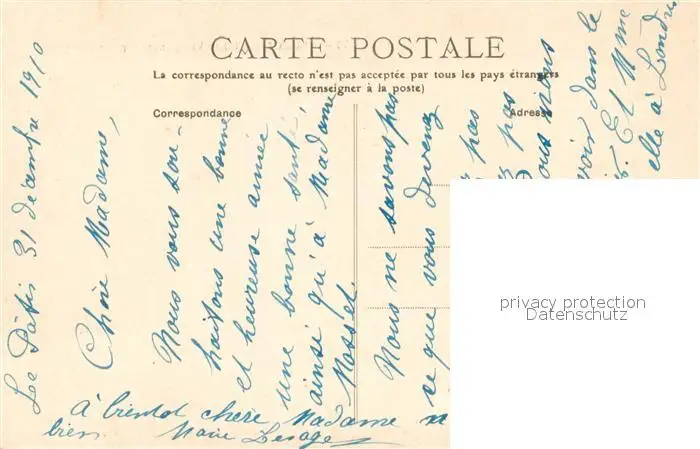 CARTE POSTALE
La correspondance au recto n'est pas acceptée par tous les pays étrangers
(se renseigner à la poste)
Correspondance
Adresse
Le Pâtis 31 décembre 1910
Chère Madame,
Nous vous sou-
haitons une bonne
et heureuse année
une bonne santé,
ainsi qu'à Madame
Nous ne savons pas
ce que vous devenez
pas
pas
vous
voir dans le
Et Mme
elle à Londres
à bientôt chère Madame
bien
Marie Lesage
privacy protection
Datenschutz